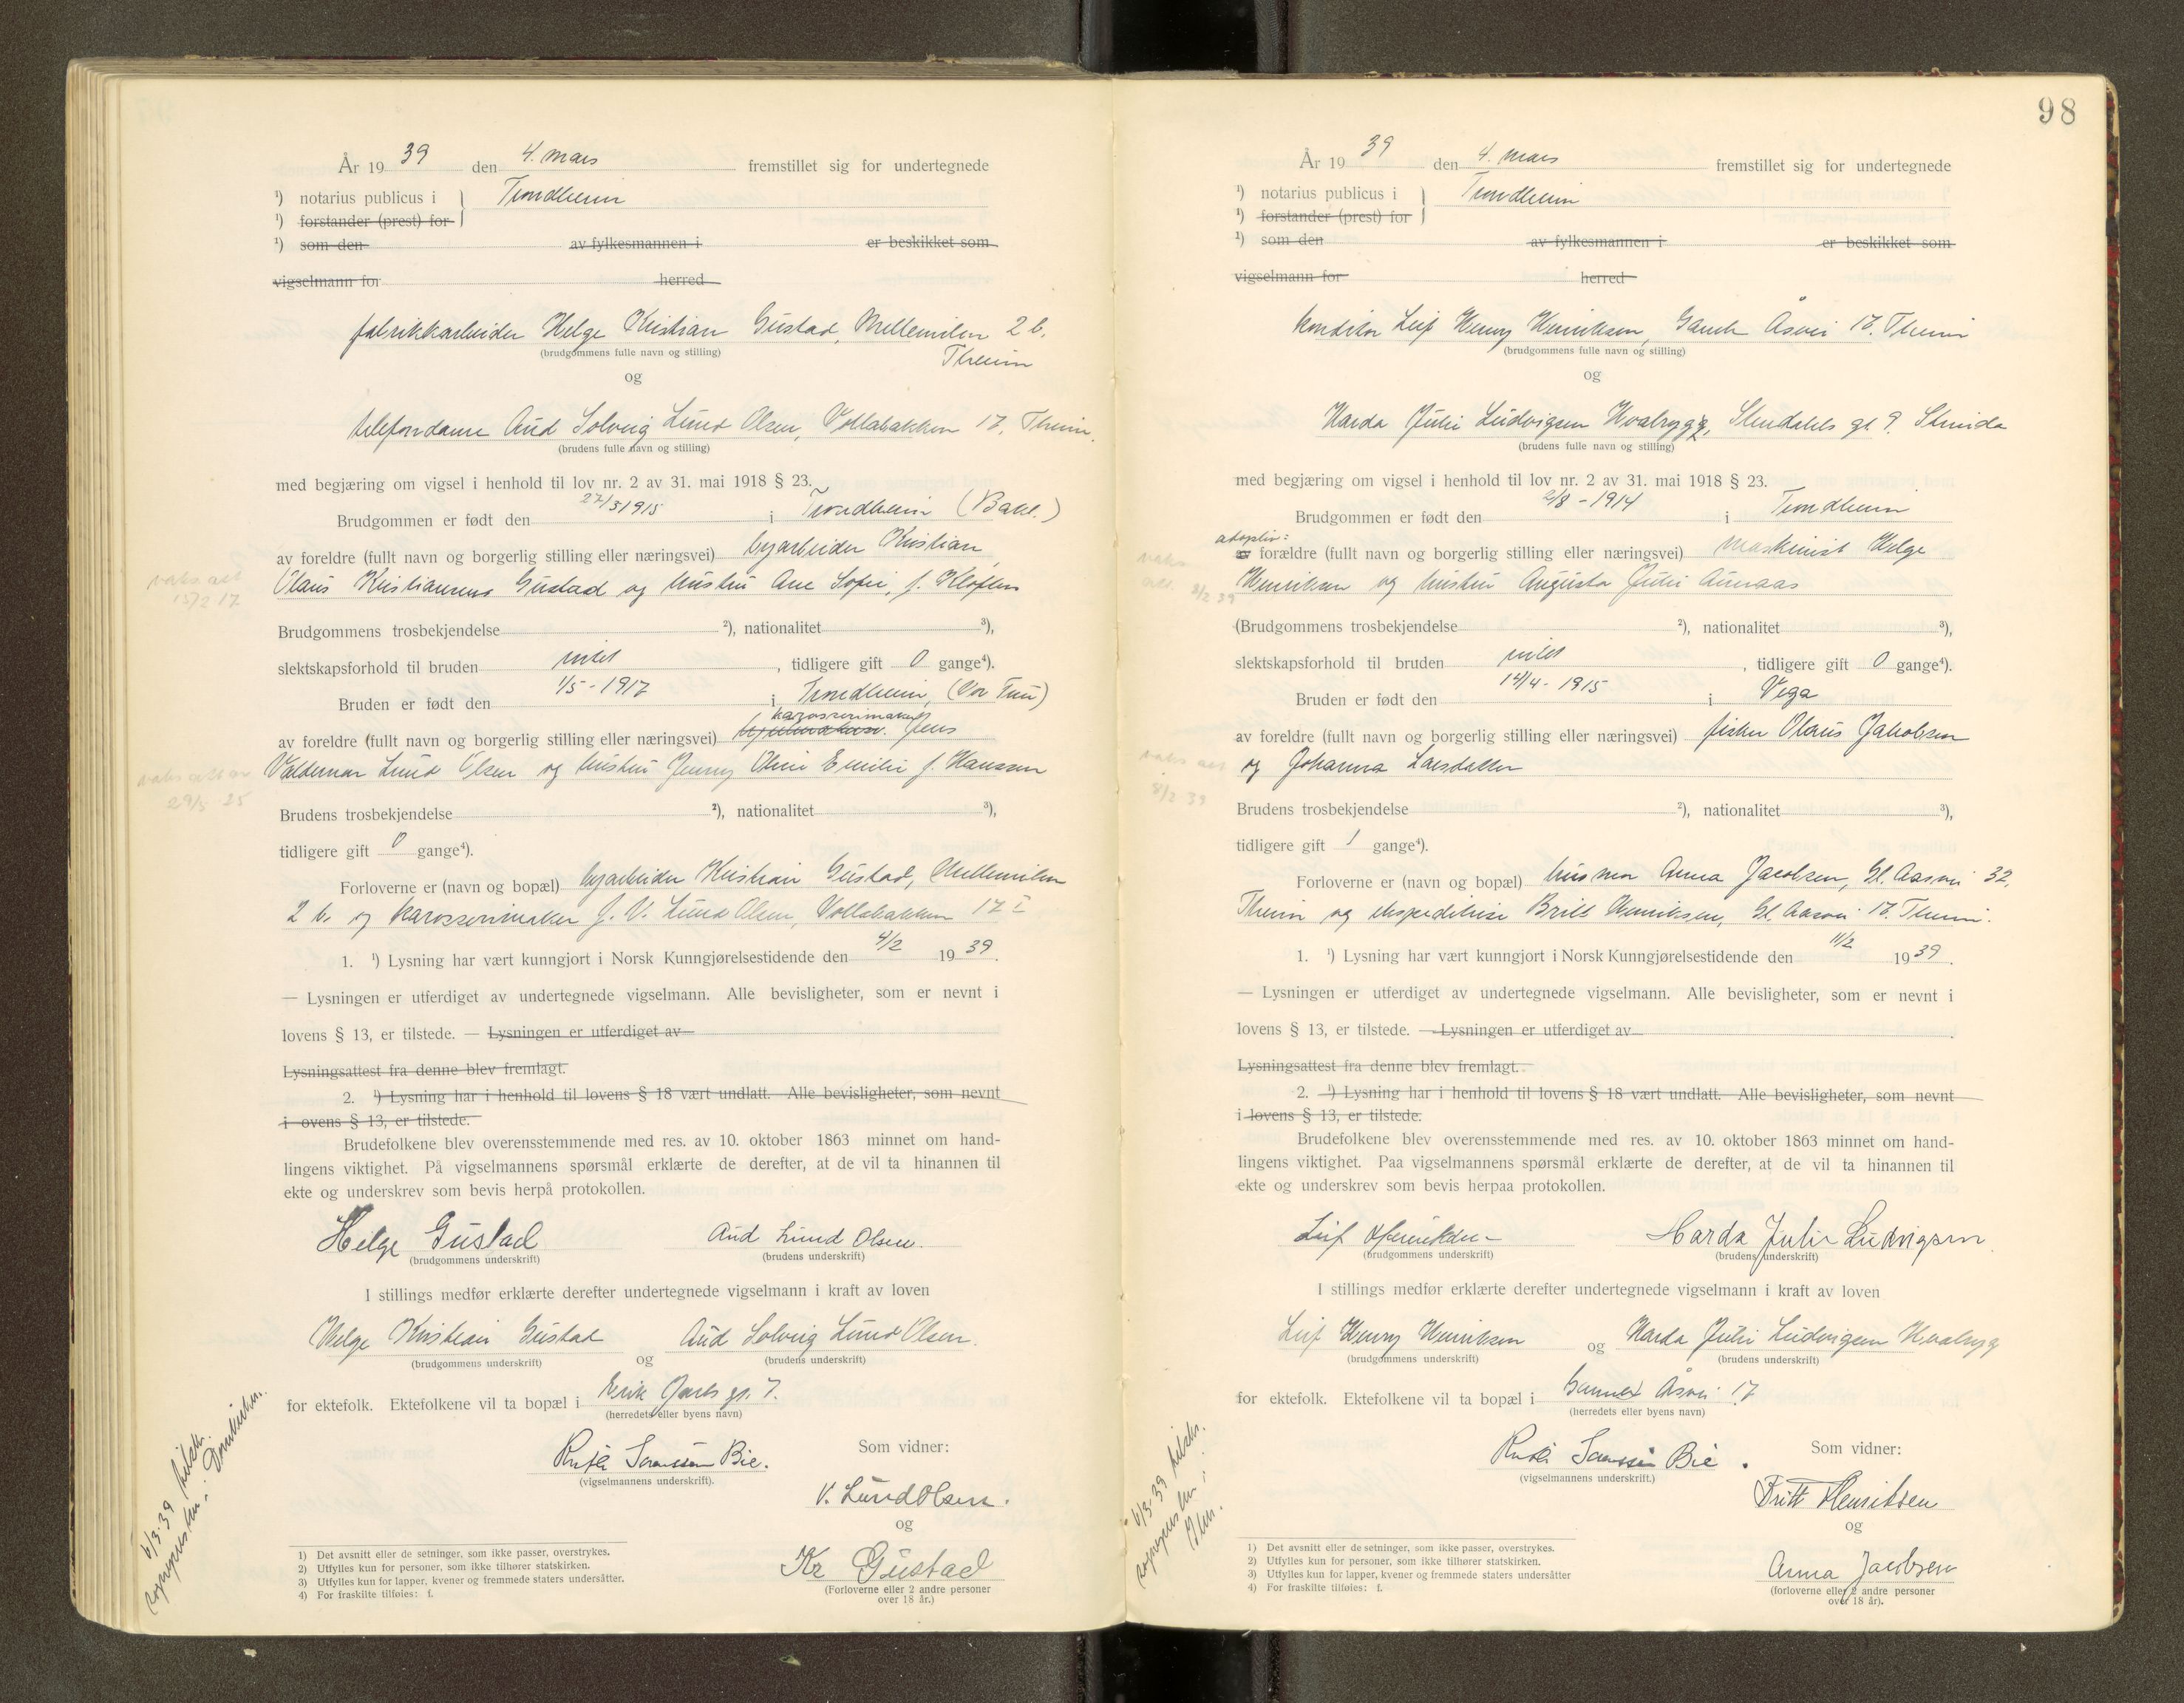 År 1939 den 4. mars fremstillet sig for undertegnede
¹) notarius publicus i Trondheim
¹) forstander (prest) for
¹) som den av fylkesmannen i er beskikket som
vigselmann for herred
fabrikkarbeider Helge Kristian Gustad, Mellemilen 2 b.
(brudgommens fulle navn og stilling)
Theim
og
telefondame Aud Solveig Lund Olsen, Vollabakken 17, Theim.
(brudens fulle navn og stilling)
med begjæring om vigsel i henhold til lov nr. 2 av 31. mai 1918 § 23.
Brudgommen er født den 27/3 1915 i Trondheim (Bakl.)
av foreldre (fullt navn og borgerlig stilling eller næringsvei) byarbeider Kristian
Olaus Kristiansens Gustad og hustru Ane Sofie, f. Kleften
vaks att
15/2 17
Brudgommens trosbekjendelse ²), nationalitet ³),
slektskapsforhold til bruden intet, tidligere gift 0 gange⁴).
Bruden er født den 1/5 - 1917 i Trondheim, (Vor Frue)
karosserimaker
av foreldre (fullt navn og borgerlig stilling eller næringsvei) Jens
Valdemar Lund Olsen og hustru Jenny Oline Emilie f. Hanssen
29/5 25
Brudens trosbekjendelse ²), nationalitet ³),
tidligere gift 0 gange⁴).
Forloverne er (navn og bopæl) byarbeider Kristian Gustad, Mellemilen
2 b. og karosserimaker J. V. Lund Olsen, Vollabakken 17 I
1. ¹) Lysning har vært kunngjort i Norsk Kunngjørelsestidende den 4/2 1939.
— Lysningen er utferdiget av undertegnede vigselmann. Alle bevisligheter, som er nevnt i
lovens § 13, er tilstede. — Lysningen er utferdiget av
Lysningsattest fra denne blev fremlagt.
2. ¹) Lysning har i henhold til lovens § 18 vært undlatt. Alle bevisligheter, som nevnt
i ovens § 13, er tilstede.
Brudefolkene blev overensstemmende med res. av 10. oktober 1863 minnet om hand-
lingens viktighet. På vigselmannens spørsmål erklærte de derefter, at de vil ta hinannen til
ekte og underskrev som bevis herpå protokollen.
Helge Gustad Aud Lund Olsen.
(brudgommens underskrift) (brudens underskrift)
I stillings medfør erklærte derefter undertegnede vigselmann i kraft av loven
Helge Kristian Gustad og Aud Solveig Lund Olsen.
(brudgommens underskrift) (brudens underskrift)
for ektefolk. Ektefolkene vil ta bopæl i Erik Jarls gt. 7.
(herredets eller byens navn)
Som vidner:
Sørenssen Bie.
(vigselmannens underskrift).
V. Lund Olsen.
og
Kr Gustad
(Forloverne eller 2 andre personer
over 18 år.)
1) Det avsnitt eller de setninger, som ikke passer, overstrykes.
2) Utfylles kun for personer, som ikke tilhører statskirken.
3) Utfylles kun for lapper, kvener og fremmede staters undersåtter.
4) For fraskilte tilføies: f.
6/3.39 tilskr.
98
År 1939 den 4. mars fremstillet sig for undertegnede
¹) notarius publicus i Trondheim
¹) forstander (prest) for
¹) som den av fylkesmannen i er beskikket som
vigselmann for herred
konditor Leif Henry Henriksen, Gamle Åsvei 17. Theim
(brudgommens fulle navn og stilling)
og
Harda Julie Ludvigsen Hvalrygg, Stendahls gt 9. Strinda
(brudens fulle navn og stilling)
med begjæring om vigsel i henhold til lov nr. 2 av 31. mai 1918 § 23.
Brudgommen er født den 2/8 - 1914 i Trondheim
adoptiv:
forældre (fullt navn og borgerlig stilling eller næringsvei) maskinist Helge
Henriksen og hustru Augusta Julie Aunaas
8/2 39
(Brudgommens trosbekjendelse ²), nationalitet ³),
slektskapsforhold til bruden intet, tidligere gift 0 gange⁴).
Bruden er født den 12/4 - 1915 i Vega
av foreldre (fullt navn og borgerlig stilling eller næringsvei) fisker Olaus Jakobsen
og Johanna Larsdatter
vaks att
8/2 39
Brudens trosbekjendelse ²), nationalitet ³),
tidligere gift 1 gange⁴).
Forloverne er (navn og bopæl) husmor Anna Jacobsen, Gl. Aasvei 32,
Theim og ekspeditrise Britt Henriksen, Gl. Aasvei 17. Theim.
1. ¹) Lysning har vært kunngjort i Norsk Kunngjørelsestidende den 11/2 1939.
— Lysningen er utferdiget av undertegnede vigselmann. Alle bevisligheter, som er nevnt i
lovens § 13, er tilstede. — Lysningen er utferdiget av
Lysningsattest fra denne blev fremlagt.
2. ¹) Lysning har i henhold til lovens § 18 vært undlatt. Alle bevisligheter, som nevnt
i lovens § 13, er tilstede.
Brudefolkene blev overensstemmende med res. av 10. oktober 1863 minnet om hand-
lingens viktighet. Paa vigselmannens spørsmål erklærte de derefter, at de vil ta hinannen til
ekte og underskrev som bevis herpaa protokollen.
Leif Henriksen Harda Julie Ludvigsen
(brudgommens underskrift) (brudens underskrift)
I stillings medfør erklærte derefter undertegnede vigselmann i kraft av loven
Leif Henry Henriksen og Harda Julie Ludvigsen Hvalrygg
(brudgommens underskrift) (brudens underskrift)
for ektefolk. Ektefolkene vil ta bopæl i Gamle Åsvei 17
(herredets eller byens navn)
Som vidner:
Sørenssen Bie.
(vigselmannens underskrift.)
Britt Henriksen
og
Anna Jacobsen
(forloverne eller 2 andre personer
over 18 år).
1) Det avsnitt eller de setninger, som ikke passer, overstrykes.
2) Utfylles kun for personer, som ikke tilhører statskirken.
3) Utfylles kun for lapper, kvener og fremmede staters undersåtter
4) For fraskilte tilføies: f.
6/3.39 tilskr.